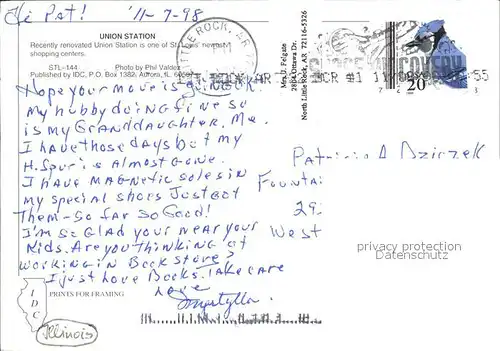 Hi Pat! 11-7-98
UNION STATION
Recently renovated Union Station is one of St. Louis' newest
shopping centers.
STL-144 Photo by Phil Valdez
Published by IDC, P.O. Box 1382, Aurora, IL
Hope your move is
My hubby doing fine so
is my Granddaughter. Me.
I have those days but my
H. Spur is almost gone.
I have magnetic soles in
my special shoes Just got
Them - So far so Good!
I'm so Glad your near your
Kids. Are you thinking of
working in Book store?
I just love Books. Take care
Love
IDC
PRINTS FOR FRAMING
Illinois
LITTLE ROCK, AR
PM
SPACE DISCOVERY
Mrs. D. Felgate
Ottawa Dr.
North Little Rock, AR 72116-5326
20
Patricia A Dziczek
Founta
29
West
privacy protection
Datenschutz